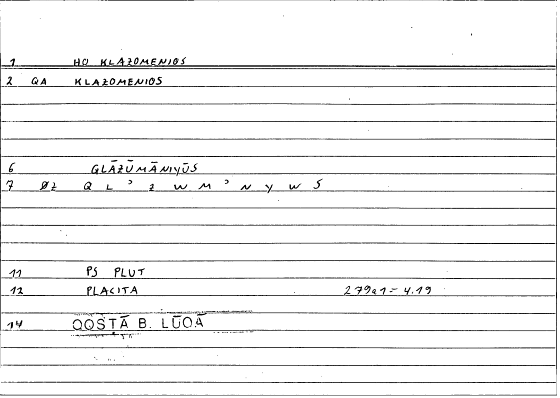 1 HO KLAZOMENIOS
2 QA KLAZOMENIOS
6 GLĀZŪMĀNIYŪS
7 ØZ Q L ʾ Z W M ʾ N Y W S
11 PS PLUT
12 PLACITA 279a1 = 4.19
14 QOSṬĀ B. LŪQĀ